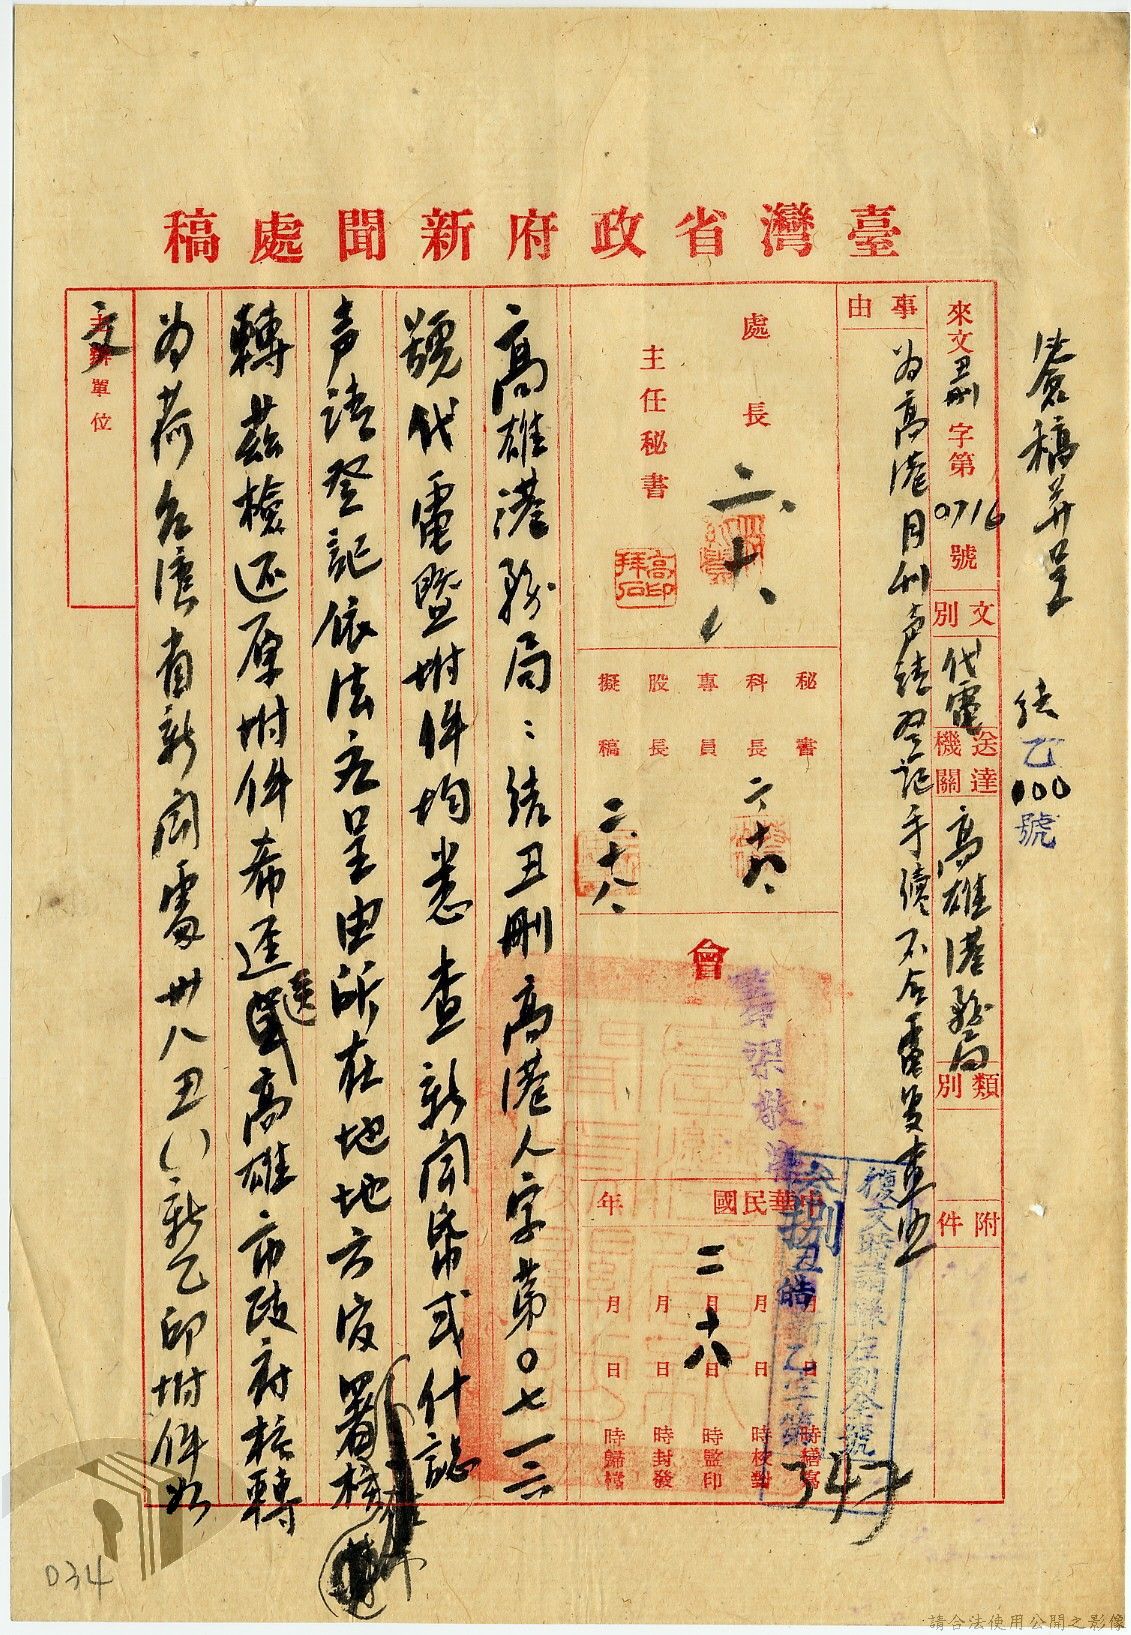 臺灣省政府新聞處稿
法卷稿并呈
結乙100號
來文丑刪字第0716號
文別 代電
送達機關 高雄港務局
類別
附件
事由
為高港月刊声請登記手續不合電复查照
處長
二、十八
主任秘書
高印拜石
秘書
科長
專員
股長
擬稿
二、十八、
二、十八、
會
中華民國
年
復文時請註左列全號
叁捌丑皓新乙字第
347
月 日 時繕寫
月 日 時校對
二月十八日 時監印
月 日 時封發
月 日 時歸檔
高雄港務局：結丑刪高港人字第〇七一六
號代電暨附件均悉查新聞紙或什誌
声請登記依法应呈由所在地地方官署核
轉茲檢还原附件希逕送高雄市政府核轉
為荷台湾省新聞處卅八丑（）新乙印附件如
文
主辦單位
034
請合法使用公開之影像